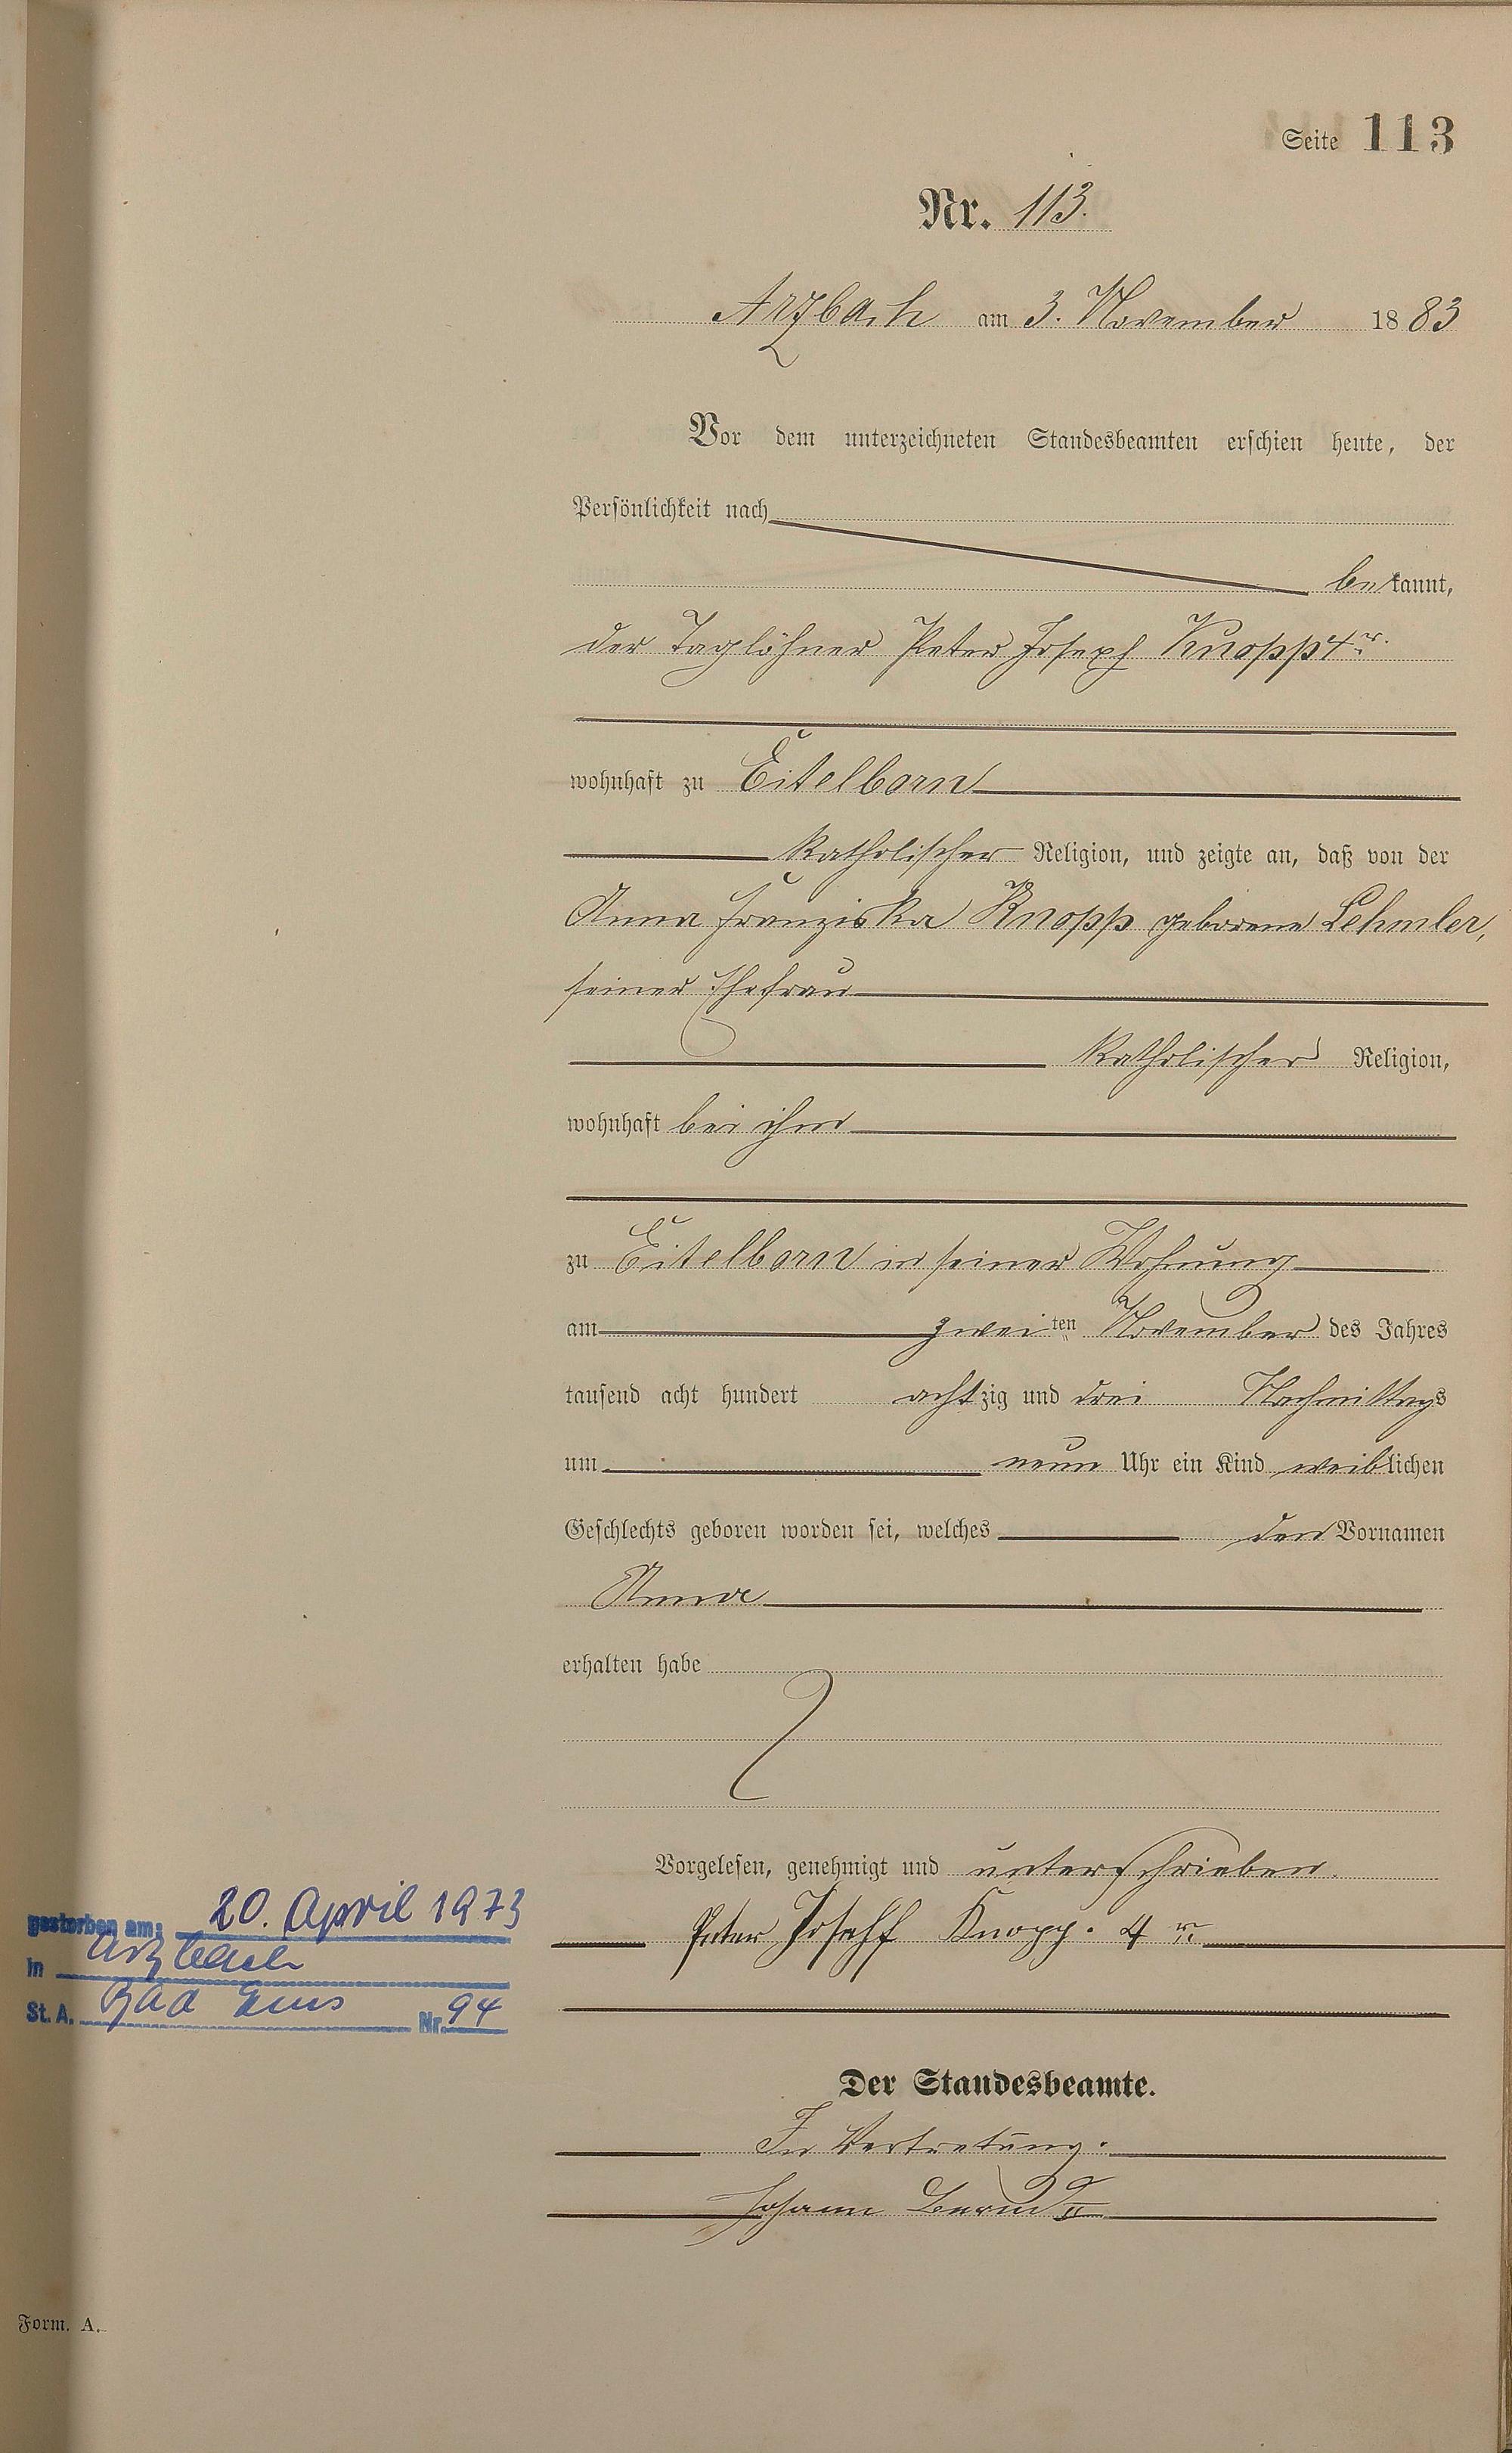 Seite 113
Nr. 113.
Arzbach am 3. November 1883
Vor dem unterzeichneten Standesbeamten erschien heute, der
Persönlichkeit nach
bekannt,
der Taglöhner Peter Joseph Knopp 4r.
wohnhaft zu Eitelborn
katholischer Religion, und zeigte an, daß von der
Anna Franziska Knopp geborene Lehmler,
seiner Ehefrau
katholischer Religion,
wohnhaft bei ihm
zu Eitelborn in seiner Wohnung
am zweiten November des Jahres
tausend acht hundert achtzig und drei Nachmittags
um neun Uhr ein Kind weiblichen
Geschlechts geboren worden sei, welches den Vornamen
Anna
erhalten habe
Vorgelesen, genehmigt und unterschrieben.
Peter Joseff Knopp. 4r.
gestorben am: 20. April 1973
in Arzbach
St. A. Bad Ems Nr. 94
Der Standesbeamte.
In Vertretung.
Johann II
Form. A.